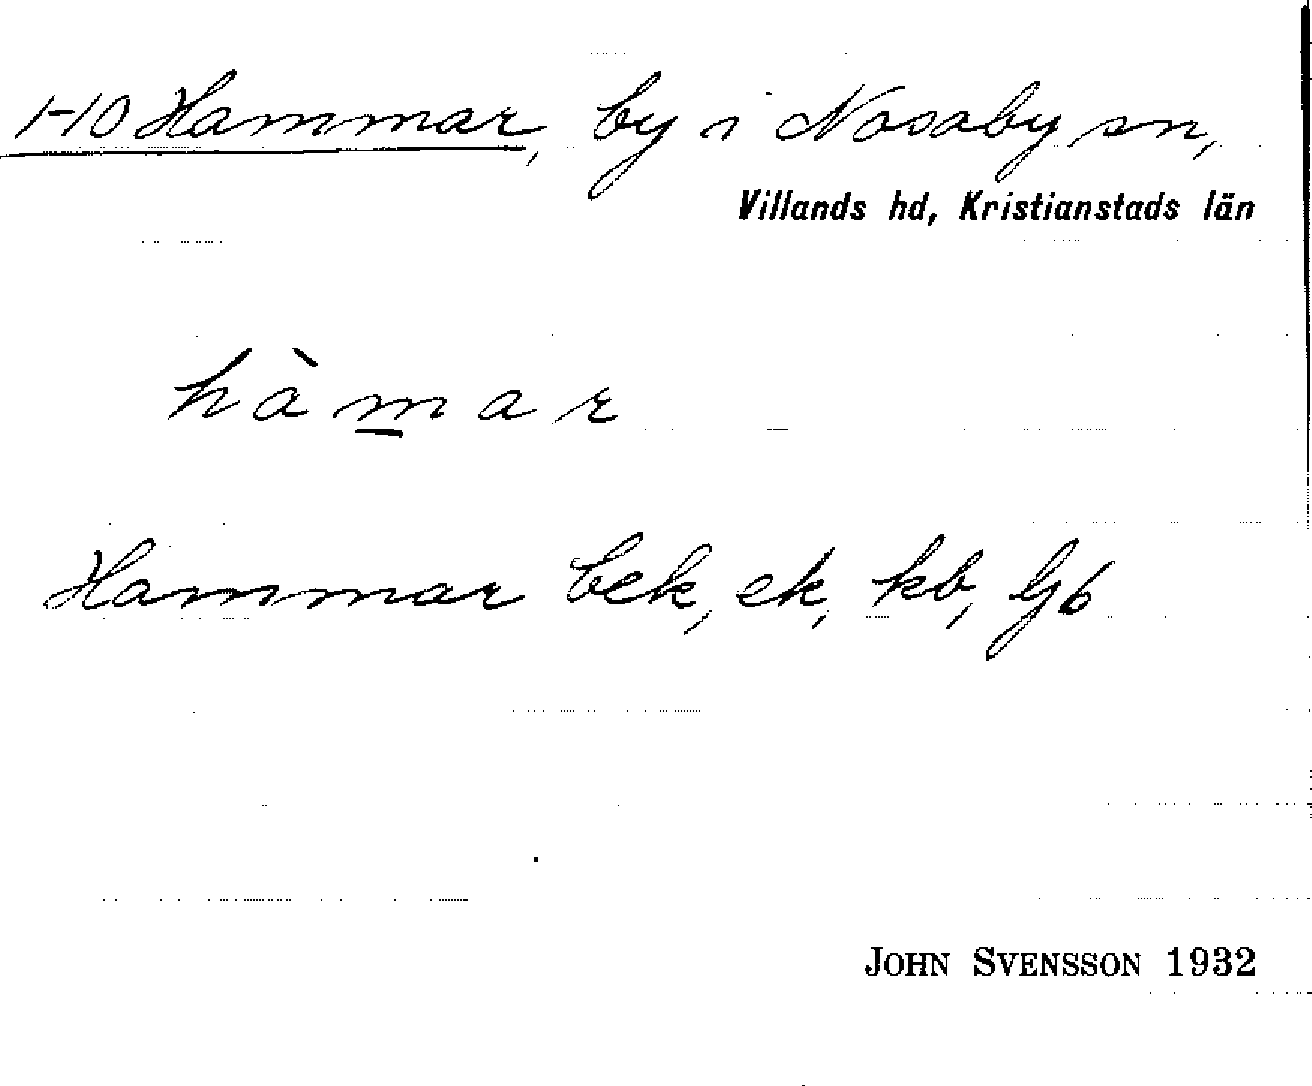 1-10 Hammar, by i Nosaby sn,
Villands hd, Kristianstads län
hàmar
Hammar bek, ek, kb, Gjb
JOHN SVENSSON 1932